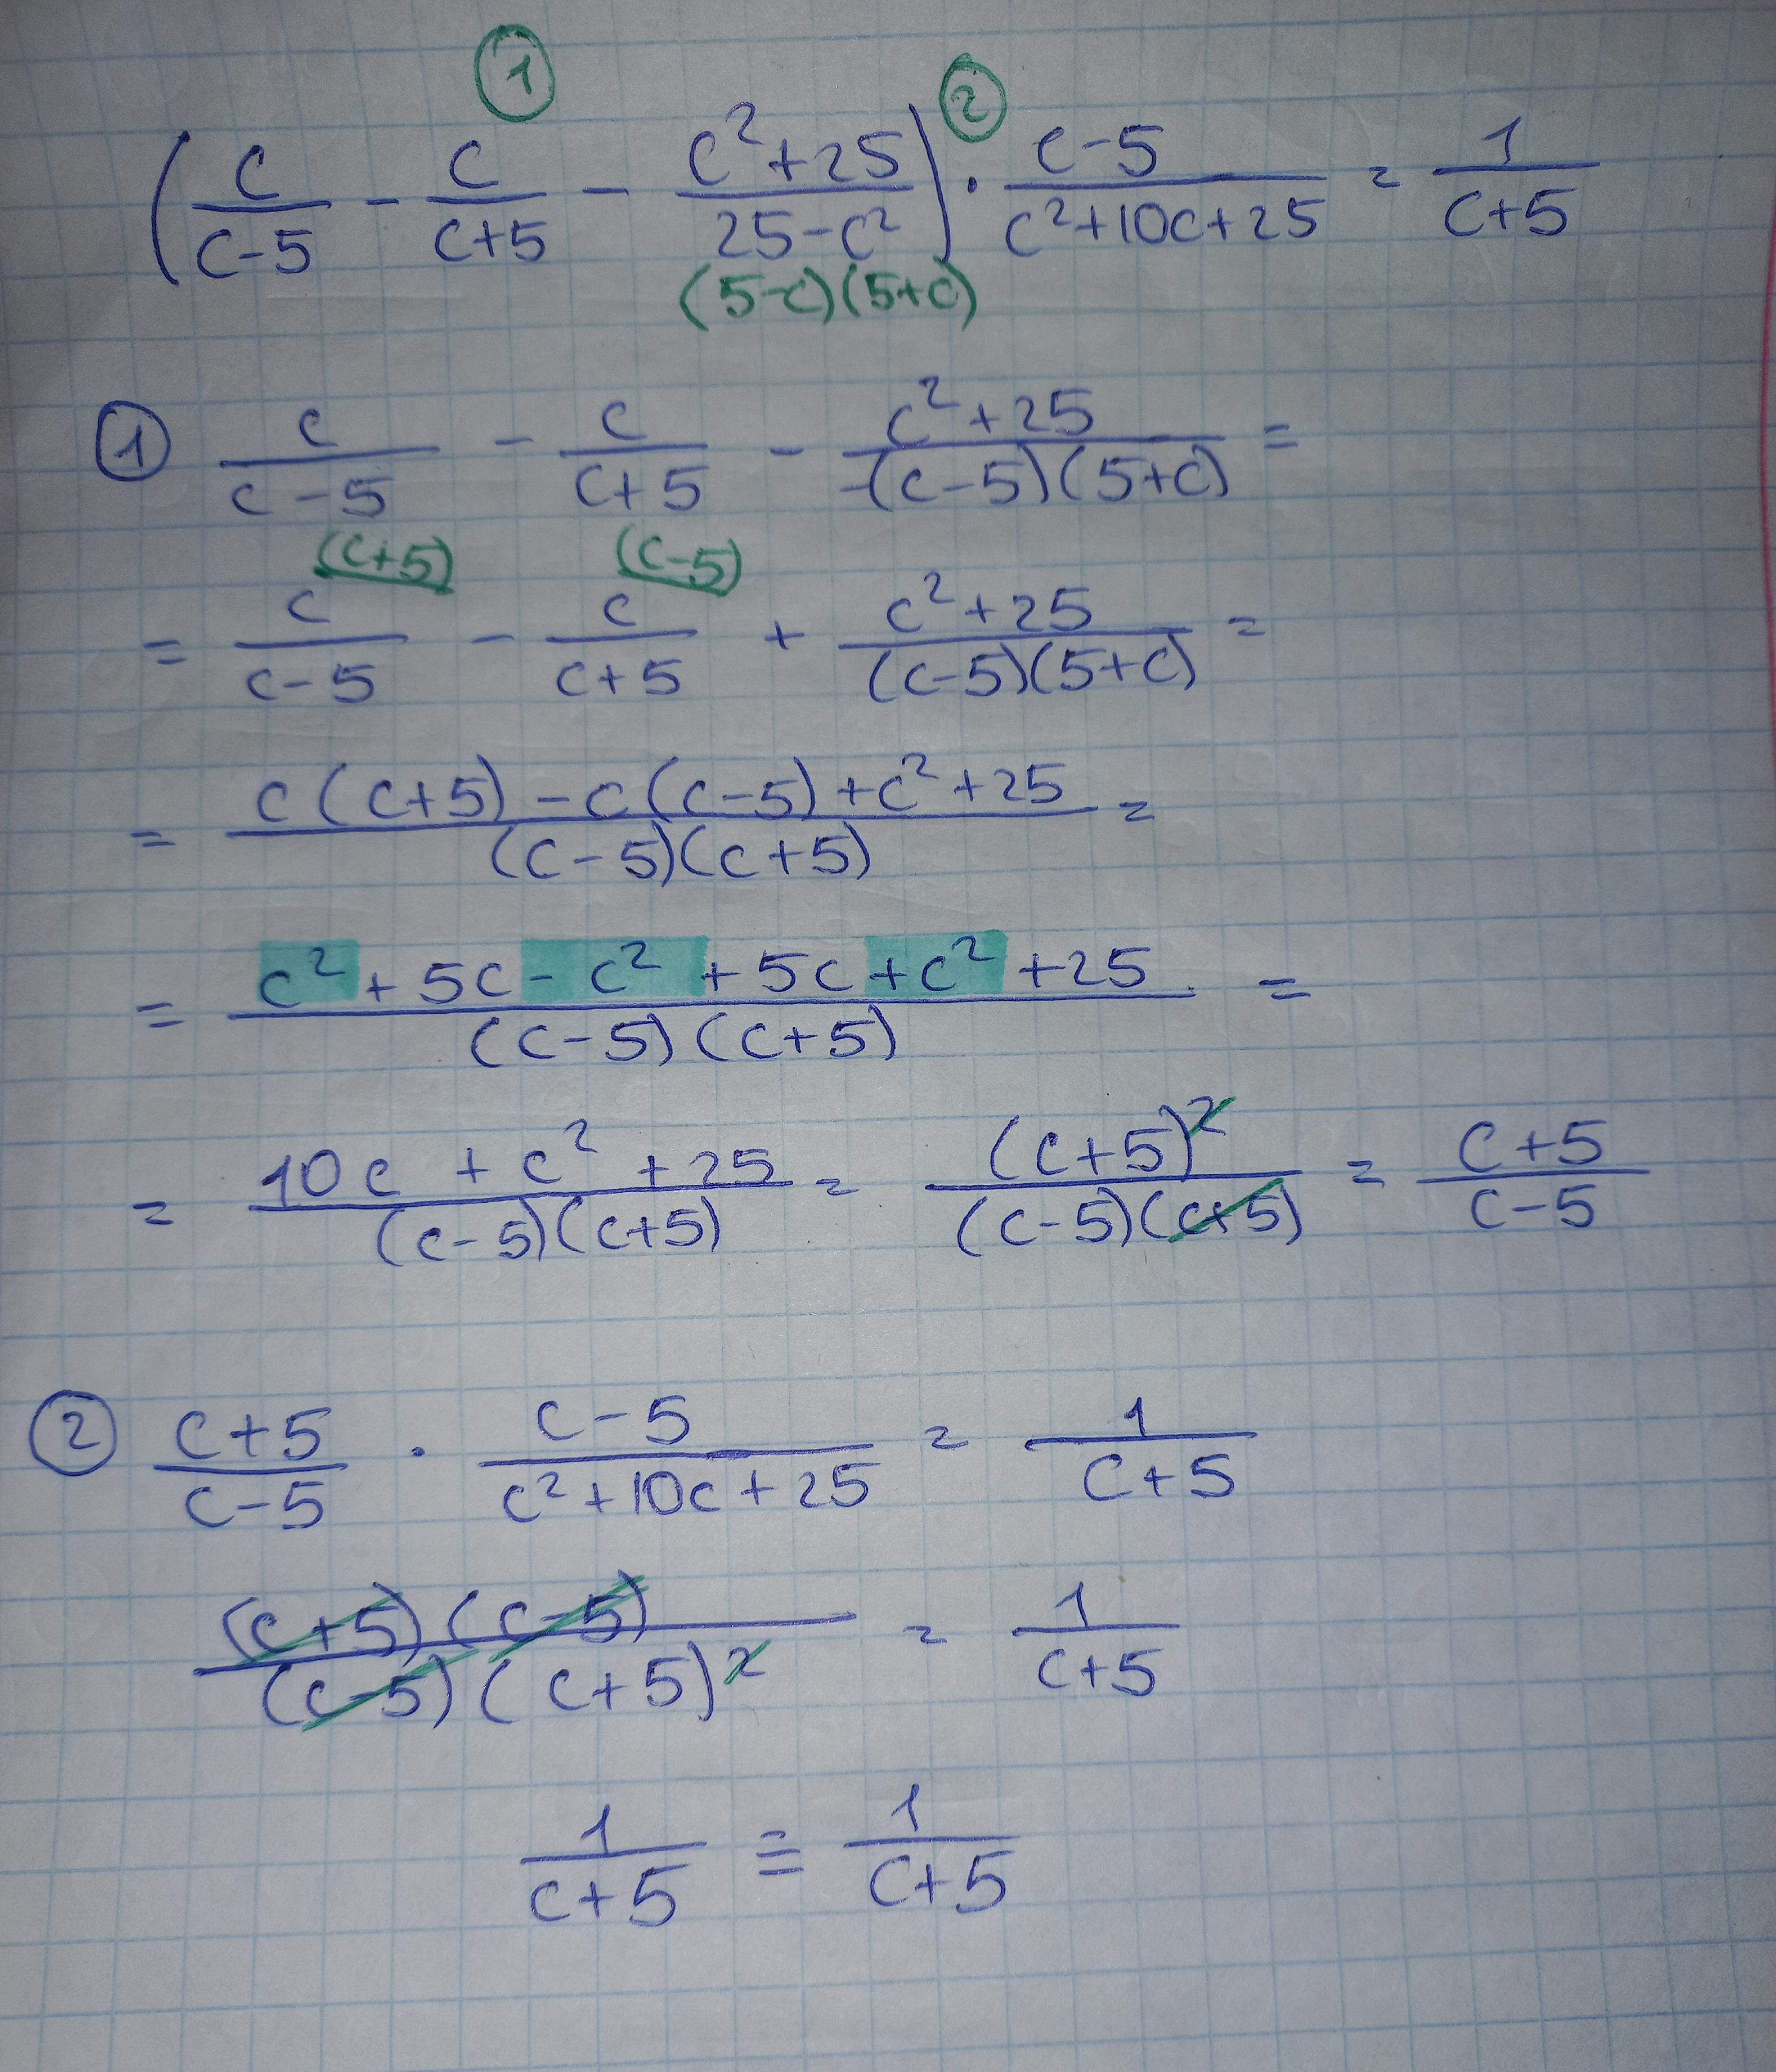 ① ②
(c/(c-5) - c/(c+5) - (c²+25)/(25-c²)) · (c-5)/(c²+10c+25) = 1/(c+5)
(5-c)(5+c)
① c/(c-5) - c/(c+5) - (c²+25)/(-(c-5)(5+c)) =
(c+5) (c-5)
= c/(c-5) - c/(c+5) + (c²+25)/((c-5)(5+c)) =
= (c(c+5) - c(c-5) + c² + 25)/((c-5)(c+5)) =
= (c² + 5c - c² + 5c + c² + 25)/((c-5)(c+5)) =
= (10c + c² + 25)/((c-5)(c+5)) = (c+5)²/((c-5)(c+5)) = (c+5)/(c-5)
② (c+5)/(c-5) · (c-5)/(c²+10c+25) = 1/(c+5)
((c+5)(c-5))/((c-5)(c+5)²) = 1/(c+5)
1/(c+5) ≡ 1/(c+5)